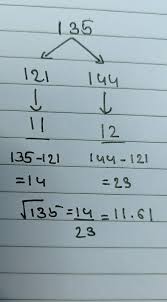 135
121 144
11 12
135-121 144-121
=14 =23
√135=14/23=11.61